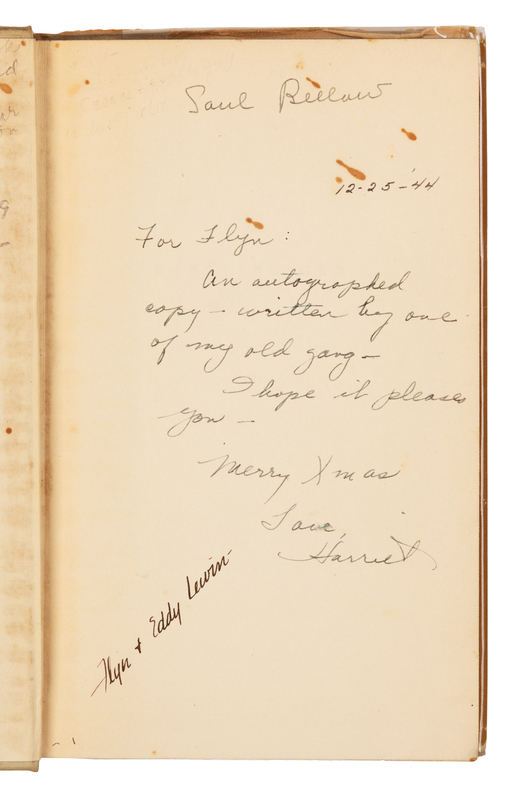 Saul Bellow
12-25-'44
For Flyn:
An autographed
copy - written by one
of my old gang -
I hope it pleases
you -
Merry Xmas
Love,
Harriet
Flyn + Eddy Lewin